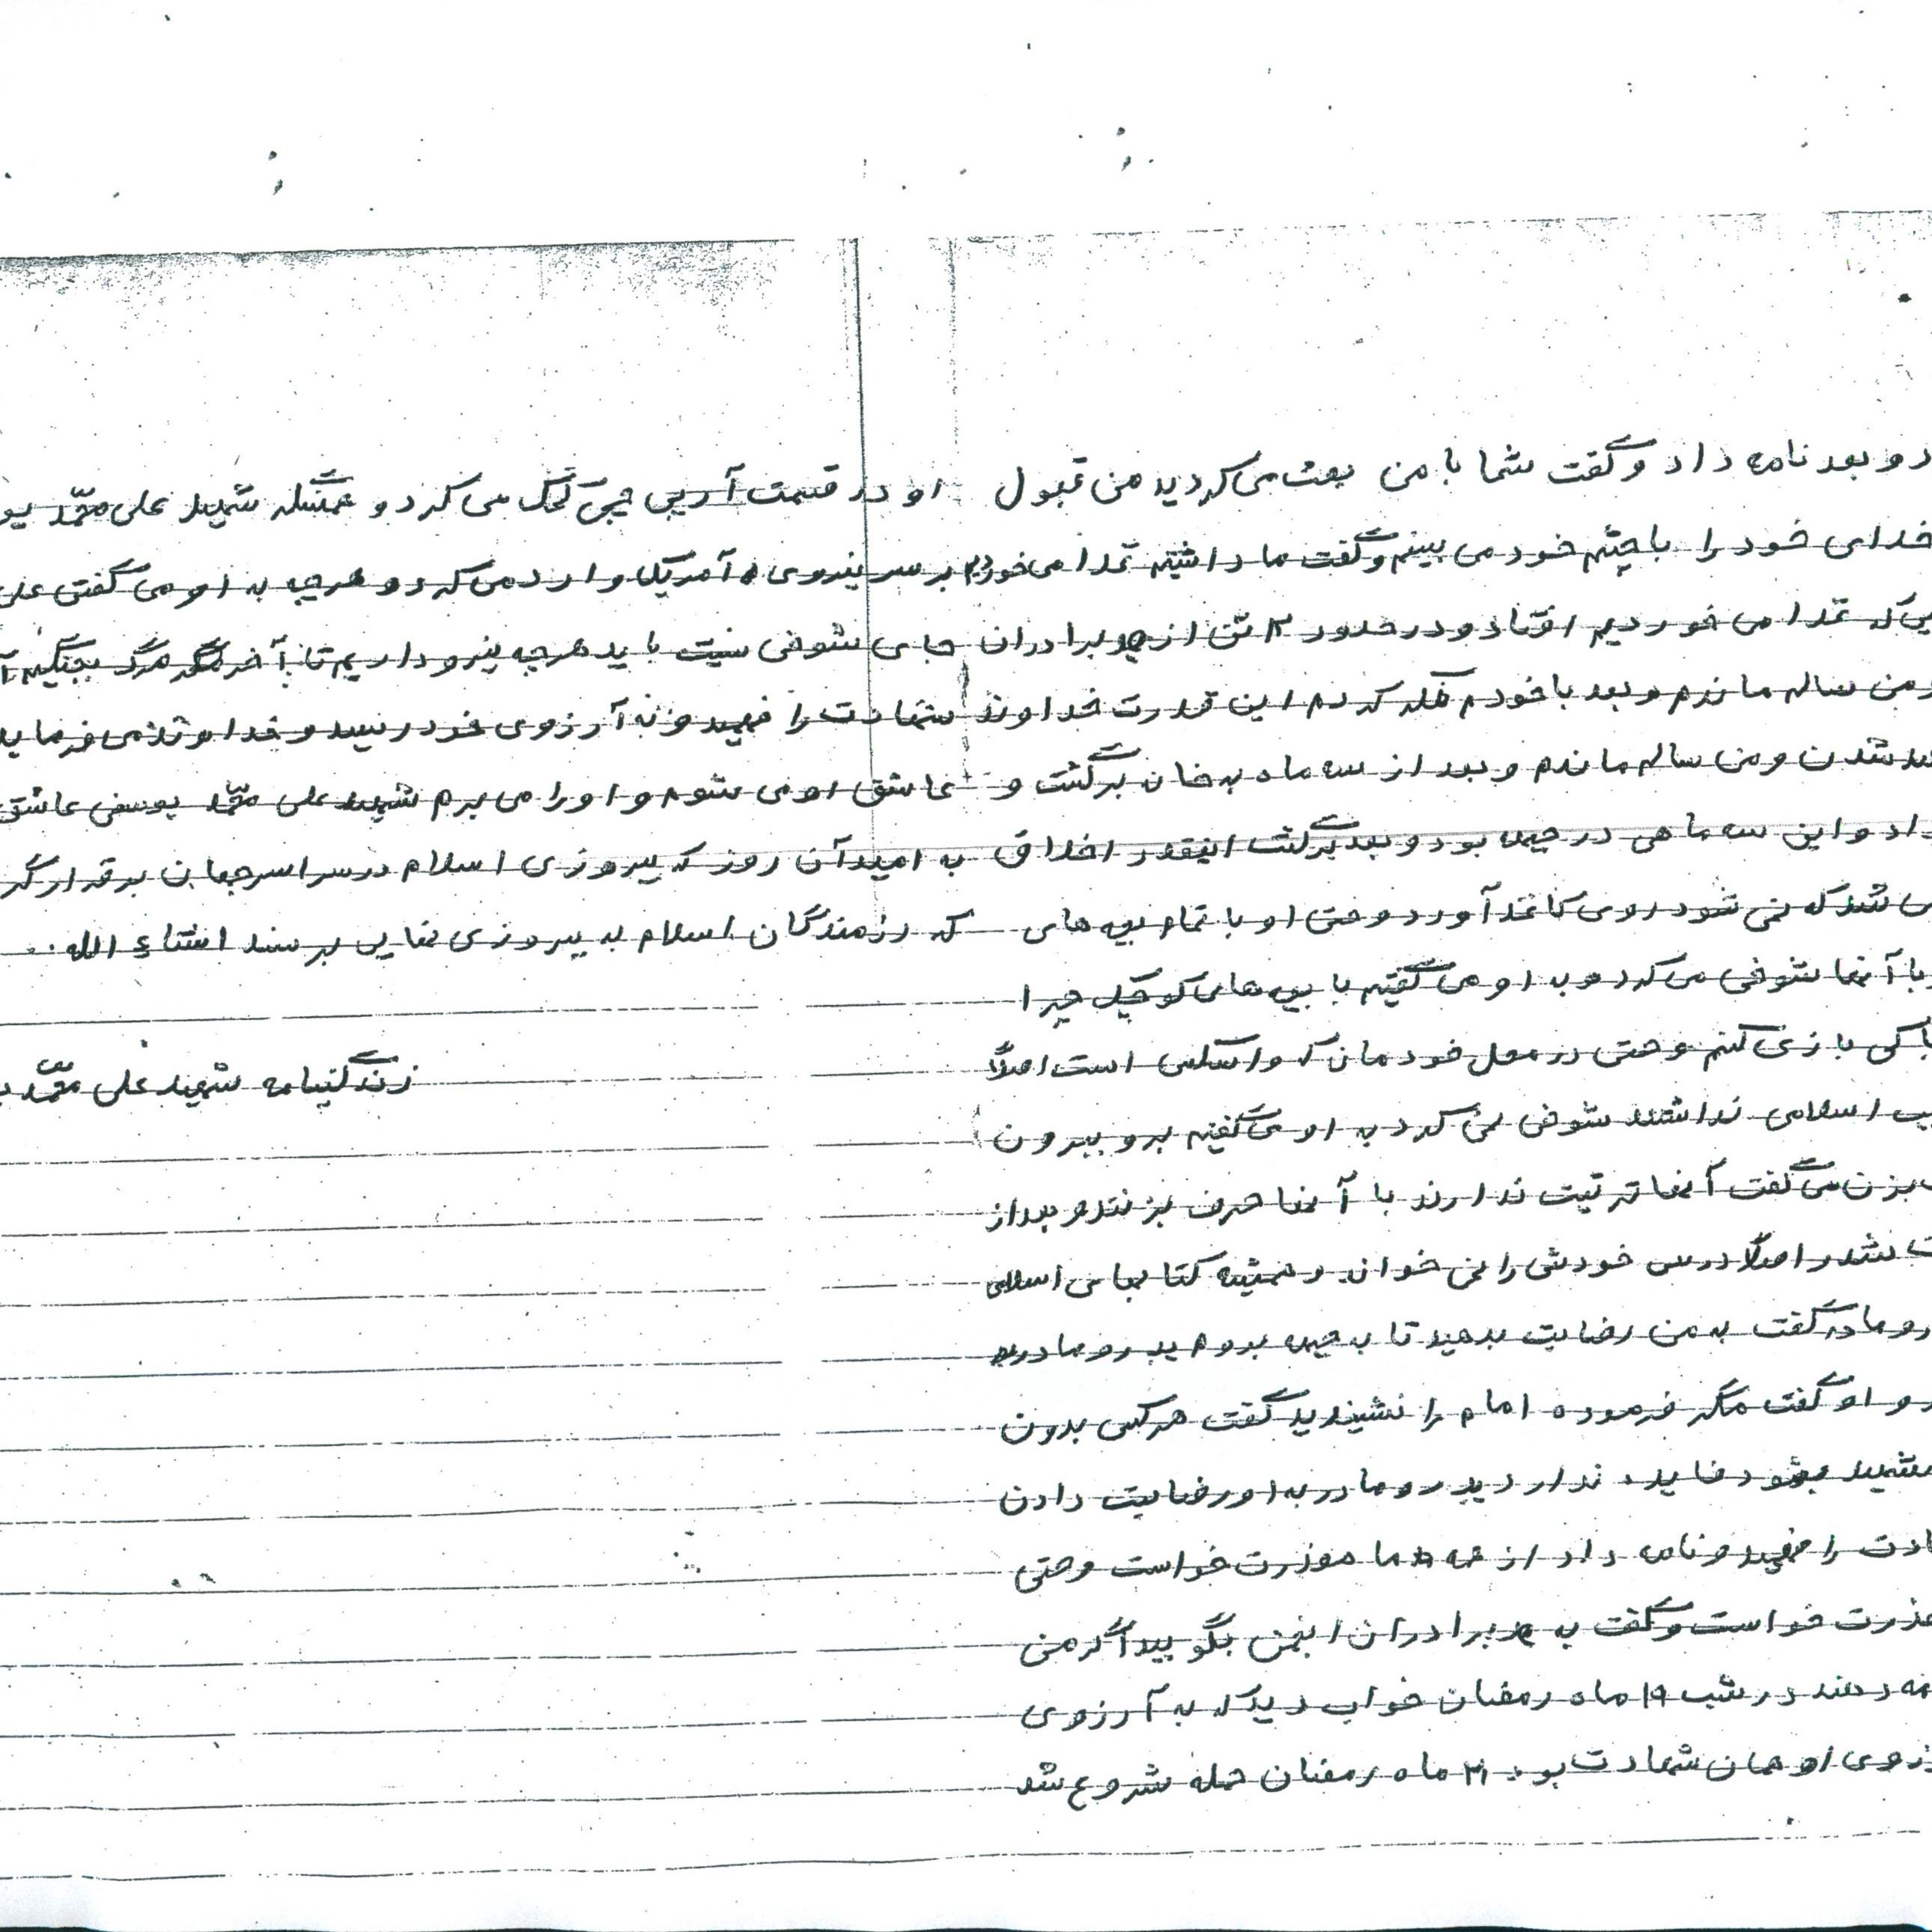 د و بعد نامه داد و گفت شما با من بحث می کردید من قبول
خدای خود را با چشم خود می بینم و گفت ما داشتیم غذا می خوردیم
که غذا می خوردیم افتاد و در حدود ۱۲ تن از برادران
من سالم ماندم و بعد با خودم فکر کردم این قدرت خداوند
شدن و من سالم ماندم و بعد از سه ماه به خان برگشت و
داد و این سه ماهی در جبهه بود و بعد برگشت اینقدر اخلاق
شد که نمی شود روی کاغذ آورد و حتی او با تمام بچه های
با آنها شوخی می کرد و به او می گفتیم با بچه های کوچک چرا
بازی کنم و حتی در محل خودمان که واسکس است اصلاً
اسلامی نداشتند شوخی نمی کرد به او می گفتیم برو بیرون
بزن می گفت آنها تربیت ندارند با آنها حرف بزنند و بعد از
نشد و اصلاً درس خودش را نمی خواند و همیشه کتابهای اسلامی
و مادر گفت به من رضایت بدهید تا به جبهه بروم پدر و مادر
و او گفت مگر فرموده امام را نشنیدید گفت هر کس بدون
شهید بشود فایده ندارد پدر و مادر به او رضایت دادن
را فهمید و نامه داد از همه ما معذرت خواست و حتی
معذرت خواست و گفت به برادران انجمن بگویید اگر من
دهند در شب ۱۹ ماه رمضان خواب دید که به آرزوی
او همان شهادت بود ۲۱ ماه رمضان حمله شروع شد
او در قسمت آرپی جی کمک می کرد و شهید علی محمّد
بر سر نیروی آمریکا وارد می کرد و هر چه به او می گفتی علی
جای شوخی نیست باید هر چه نیرو داریم تا آخر مرگ بجنگیم
شهادت را فهمید و به آرزوی خود رسید و خداوند می فرماید
عاشق او می شوم و او را می برم شهید علی محمّد یوسفی عاشق
به امید آن روز که پیروزی اسلام در سراسر جهان برقرار
که رزمندگان اسلام به پیروزی نهایی برسند انشاء الله..
زندگینامه شهید علی محمّد